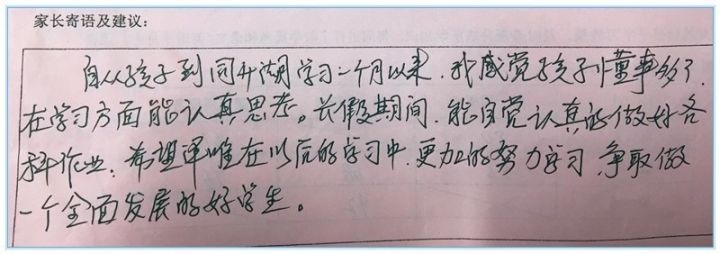 家长寄语及建议：
自从孩子到同升湖学习一个月以来，我感觉孩子懂事多了，
在学习方面能认真思考。长假期间，能自觉认真的做好各
科作业，希望唯在以后的学习中，更加的努力学习，争取做
一个全面发展的好学生。